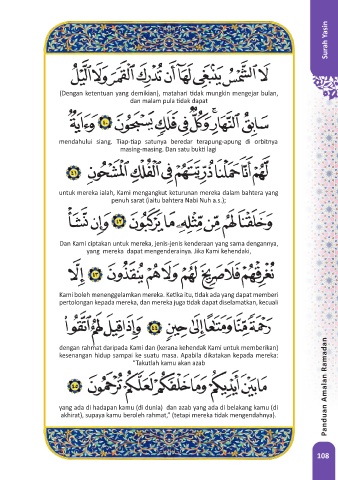 لَا ٱلشَّمْسُ يَنۢبَغِى لَهَآ أَن تُدْرِكَ ٱلْقَمَرَ وَلَا ٱلَّيْلُ
(Dengan ketentuan yang demikian), matahari tidak mungkin mengejar bulan,
dan malam pula tidak dapat
سَابِقُ ٱلنَّهَارِ ۚ وَكُلٌّ فِى فَلَكٍ يَسْبَحُونَ ٤٠ وَءَايَةٌ
mendahului siang. Tiap-tiap satunya beredar terapung-apung di orbitnya
masing-masing. Dan satu bukti lagi
لَّهُمْ أَنَّا حَمَلْنَا ذُرِّيَّتَهُمْ فِى ٱلْفُلْكِ ٱلْمَشْحُونِ ٤١
untuk mereka ialah, Kami mengangkut keturunan mereka dalam bahtera yang
penuh sarat (iaitu bahtera Nabi Nuh a.s.);
وَخَلَقْنَا لَهُم مِّن مِّثْلِهِۦ مَا يَرْكَبُونَ ٤٢ وَإِن نَّشَأْ
Dan Kami ciptakan untuk mereka, jenis-jenis kenderaan yang sama dengannya,
yang mereka dapat mengenderainya. Jika Kami kehendaki,
نُغْرِقْهُمْ فَلَا صَرِيخَ لَهُمْ وَلَا هُمْ يُنقَذُونَ ٤٣ إِلَّا
Kami boleh menenggelamkan mereka. Ketika itu, tidak ada yang dapat memberi
pertolongan kepada mereka, dan mereka juga tidak dapat diselamatkan, kecuali
رَحْمَةً مِّنَّا وَمَتَٰعًا إِلَىٰ حِينٍ ٤٤ وَإِذَا قِيلَ لَهُمُ ٱتَّقُوا۟
dengan rahmat daripada Kami dan (kerana kehendak Kami untuk memberikan)
kesenangan hidup sampai ke suatu masa. Apabila dikatakan kepada mereka:
"Takutlah kamu akan azab
مَا بَيْنَ أَيْدِيكُمْ وَمَا خَلْفَكُمْ لَعَلَّكُمْ تُرْحَمُونَ ٤٥
yang ada di hadapan kamu (di dunia) dan azab yang ada di belakang kamu (di
akhirat), supaya kamu beroleh rahmat," (tetapi mereka tidak mengendahnya).
Surah Yasin
Panduan Amalan Ramadan
108